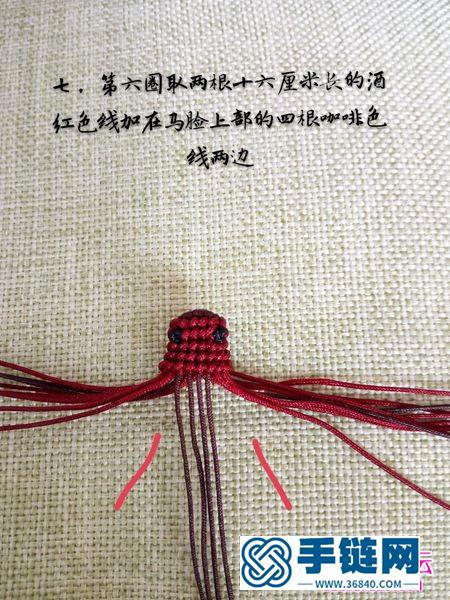 七，第六圈取两根十六厘米长的酒
红色线加在马脸上部的四根咖啡色
线两边
手链网
www.36840.com